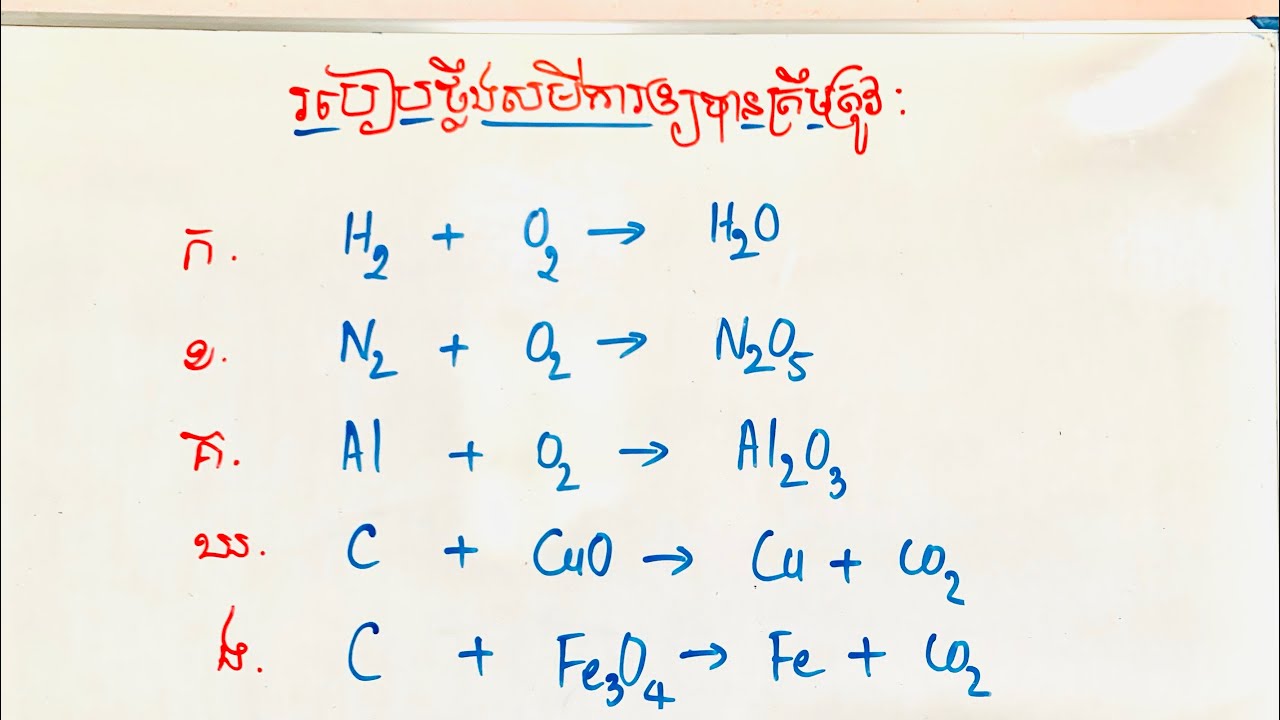 របៀបថ្លឹងសមីការឲ្យបានត្រឹមត្រូវ :
ក. H₂ + O₂ → H₂O
ខ. N₂ + O₂ → N₂O₅
គ. Al + O₂ → Al₂O₃
ឃ. C + CuO → Cu + CO₂
ង. C + Fe₃O₄ → Fe + CO₂